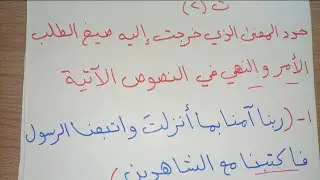 ت (٢)
حدد المعنى الذي خرجت إليه صيغ الطلب
الأمر والنهي في النصوص الآتية
١- (ربنا آمنا بما أنزلت واتبعنا الرسول
فاكتبنا مع الشاهدين)